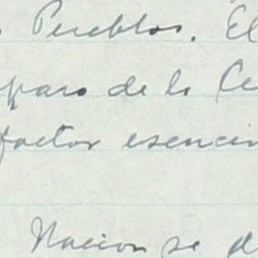 Pueblos. El
paro de la Ce
factor esencia
Nacion se d